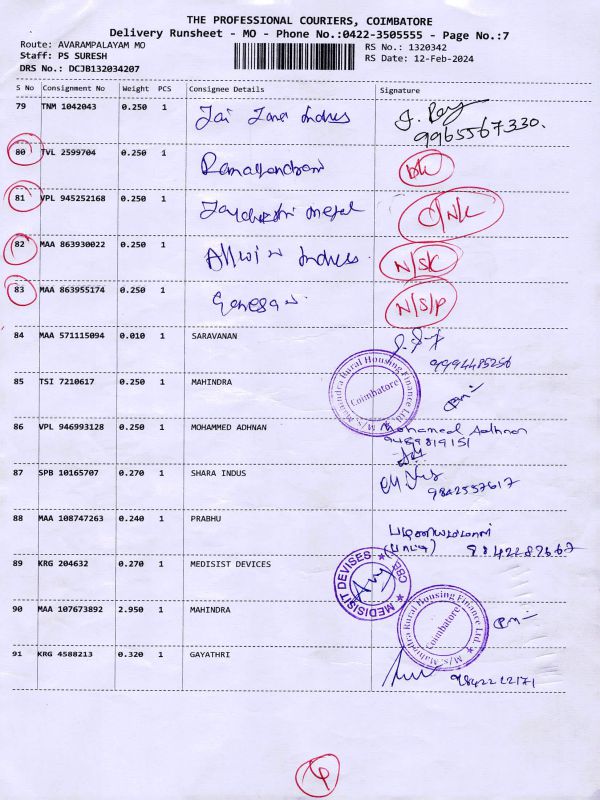 THE PROFESSIONAL COURIERS, COIMBATORE
Delivery Runsheet - MO - Phone No.:0422-3505555 - Page No.:7
Route: AVARAMPALAYAM MO
RS No.: 1320342
Staff: PS SURESH
RS Date: 12-Feb-2024
DRS No.: DCJB132034207
S No Consignment No Weight PCS Consignee Details Signature
79 TNM 1042043 0.250 1 Jai Indus
9965567330.
80 TVL 2599704 0.250 1
81 VPL 945252168 0.250 1
82 MAA 863930022 0.250 1 Allwin Indus N/SK
83 MAA 863955174 0.250 1 Ganesan N/S/P
84 MAA 571115094 0.010 1 SARAVANAN
9994485256
85 TSI 7210617 0.250 1 MAHINDRA
M/s.Mahindra Rural Housing Finance Ltd.
Coimbatore
86 VPL 946993128 0.250 1 MOHAMMED ADHNAN Mohamed Adhnan
9489819151
87 SPB 10165707 0.270 1 SHARA INDUS
9842557617
88 MAA 108747263 0.240 1 PRABHU
89 KRG 204632 0.270 1 MEDISIST DEVICES
MEDISIST DEVISES ★ CBE ★
90 MAA 107673892 2.950 1 MAHINDRA
M/s.Mahindra Rural Housing Finance Ltd.
Coimbatore
91 KRG 4588213 0.320 1 GAYATHRI